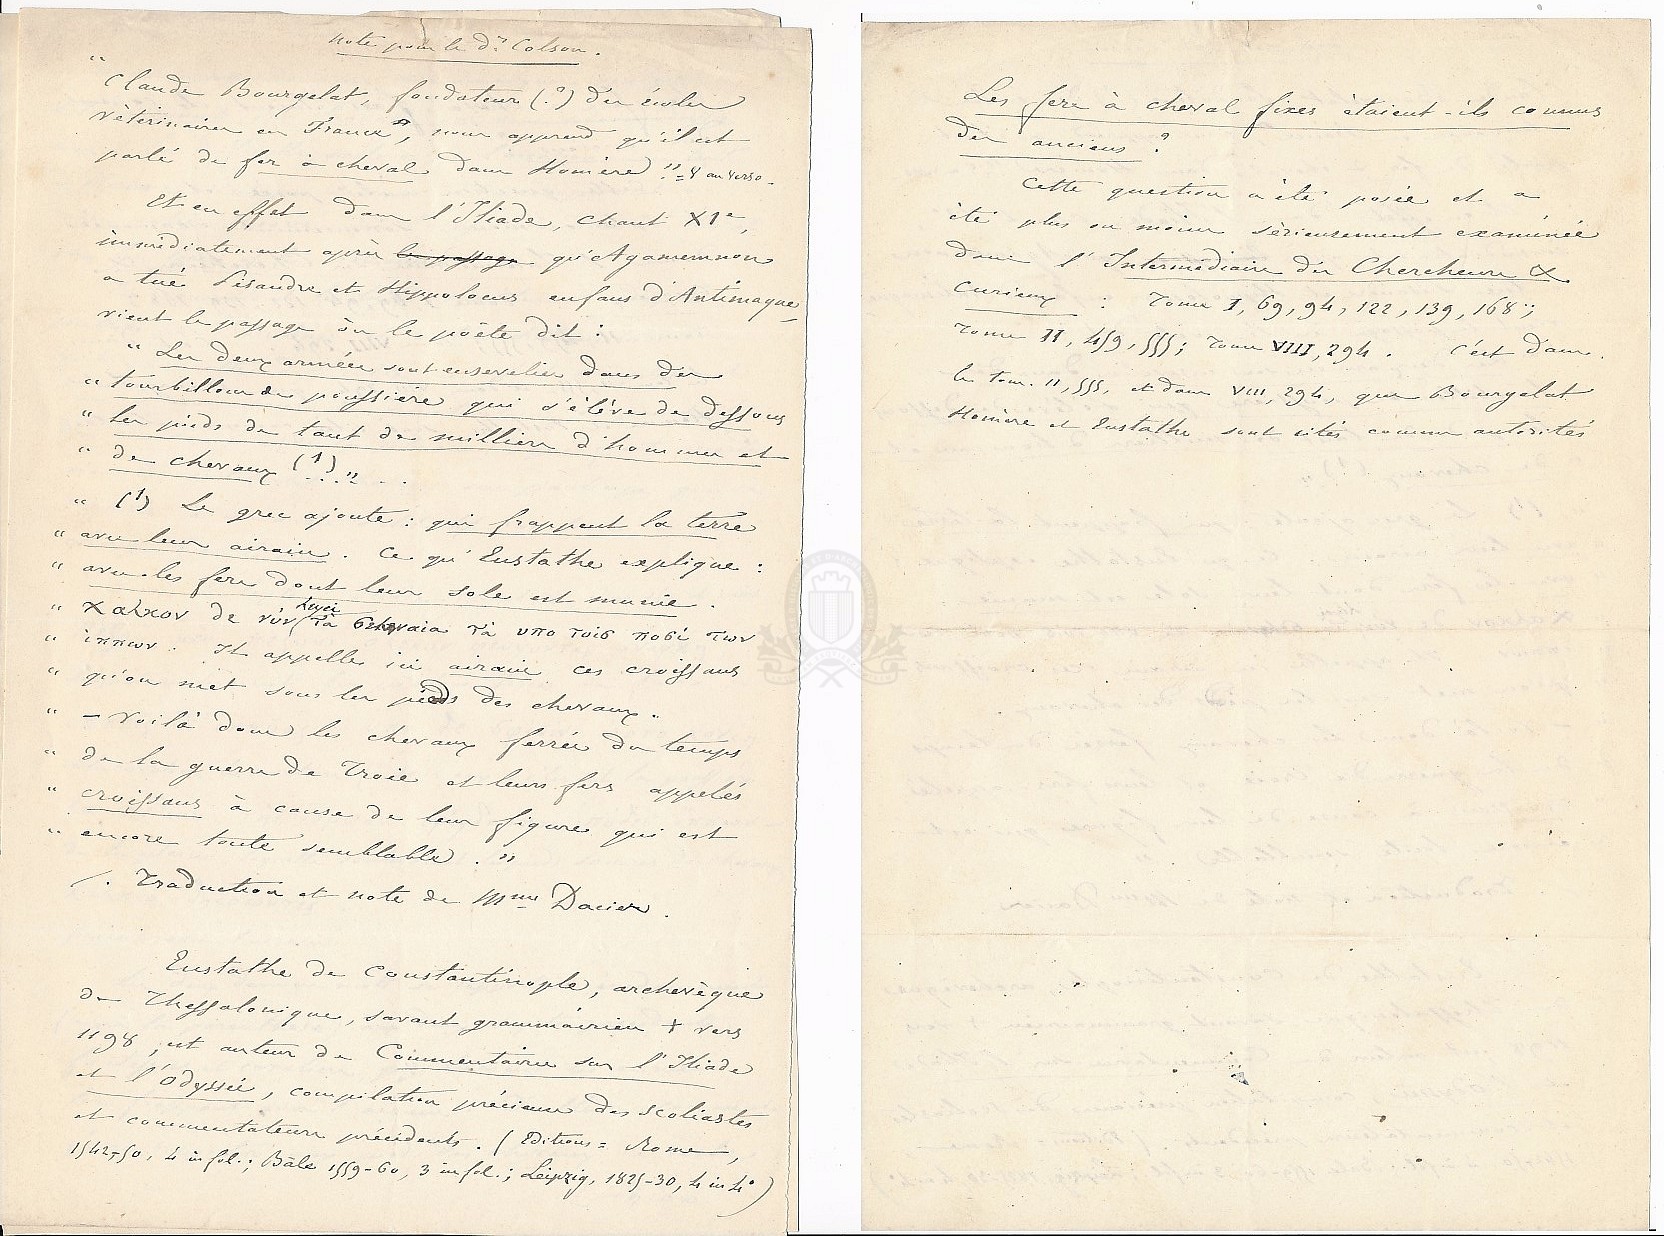 Note pour le Dr Colson.
"Claude Bourgelat, fondateur (?) des écoles
vétérinaires en France", nous apprend qu'il est
parlé de fer à cheval dans Homère "= 8 au verso.
Et en effet dans l'Iliade, chant XIe,
immédiatement après le passage qu'Agamemnon
a tué Lisandre et Hippolocus enfans d'Antimaque,
vient le passage où le poëte dit :
" Les deux armées sont ensevelies dans des
" tourbillons de poussière qui s'élève de dessous
" les pieds de tant de milliers d'hommes et
" de chevaux (1) ..."...
" (1) Le grec ajoute : qui frappent la terre
" avec leur airain. Ce qu'Eustathe explique :
" avec les fers dont leur sole est munie.
" χαλκον δε νύν λεγει τὰ σεληναια τὰ υπο τοισ ποσὶ των
" ἱππων. Il appelle ici airain ces croissans
" qu'on met sous les pieds des chevaux.
" – Voilà donc les chevaux ferrés du temps
" de la guerre de Troie et leurs fers appelés
" croissans à cause de leur figure qui est
" encore toute semblable."
/. Traduction et note de Mme Dacier.
Eustathe de Constantinople, archevêque
de Thessalonique, savant grammairien + vers
1198, est auteur de Commentaires sur l'Iliade
et l'Odyssée, compilation précieuse des scoliastes
et commentateurs précédents. (Editions = Rome,
1542-50, 4 in fol.; Bâle 1559-60, 3 in fol.; Leipzig, 1825-30, 4 in 4°)
Les fers à cheval fixes étaient-ils connus
des anciens ?
Cette question a été posée et a
été plus ou moins sérieusement examinée
dans l'Intermédiaire des Chercheurs &
Curieux : Tome I, 69, 94, 122, 139, 168;
Tome II, 459, 555; Tome VIII, 294. C'est dans
le tom. II, 555, et dans VIII, 294, que Bourgelat
Homère et Eustathe sont cités comme autorités